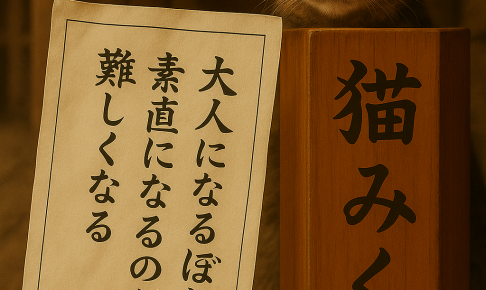 猫みく
大人になるぼ
素直になるの
難しくなる